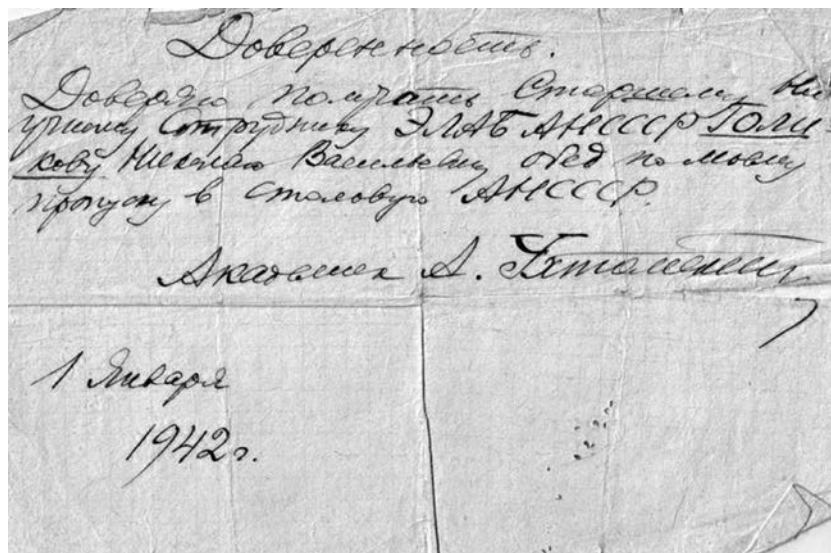 Доверенность.
Доверяю получать Старшему На
учному Сотруднику ЭЛАБ АНСССР Голи-
кову Николаю Васильевичу обед по моему
пропуску в столовую АНСССР.
Академик А. Ухтомский
1 Января
1942 г.